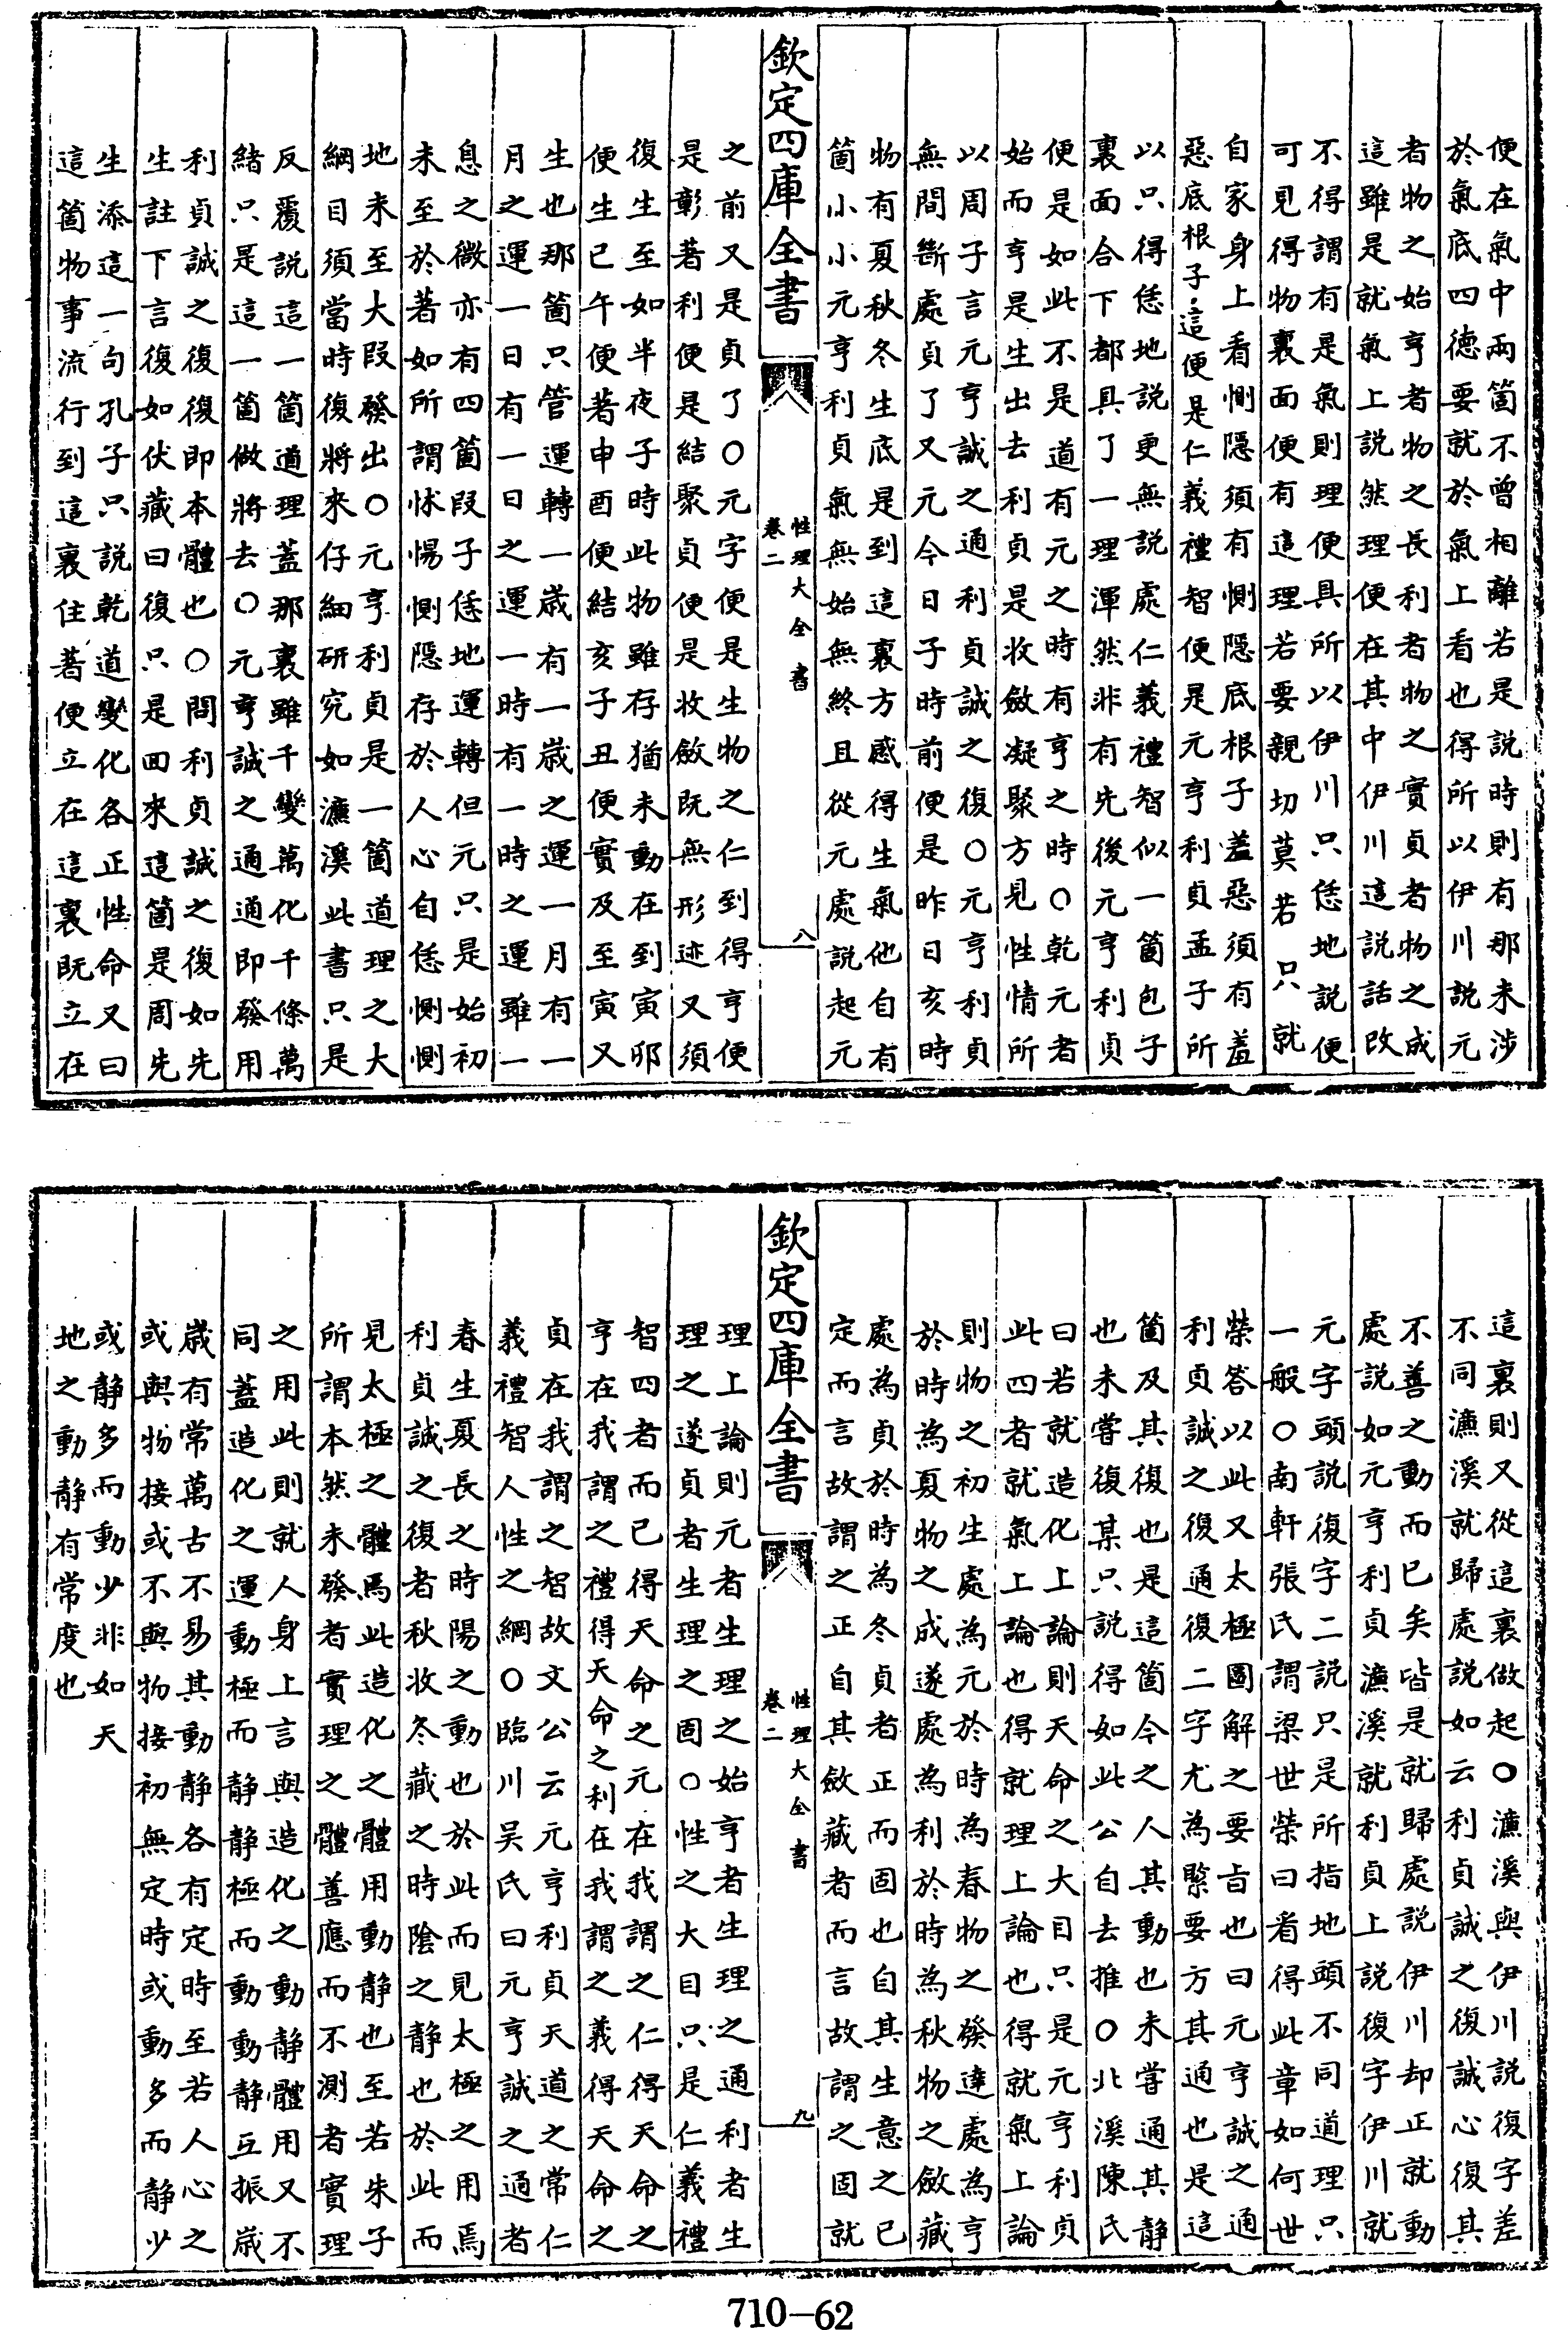 便在氣中兩箇不曾相離若是説時則有那未涉
於氣底四德要就於氣上看也得所以伊川説元
者物之始亨者物之長利者物之實貞者物之成
這雖是就氣上説然理便在其中伊川這説話改
不得謂有是氣則理便具所以伊川只恁地説便
可見得物裏面便有這理若要親切莫若只就
自家身上看惻隱須有惻隱底根子羞惡須有羞
惡底根子這便是仁義禮智便是元亨利貞孟子所
以只得恁地説更無説處仁義禮智似一箇包子
裏面合下都具了一理渾然非有先後元亨利貞
便是如此不是道有元之時有亨之時○乾元者
始而亨是生出去利貞是收斂凝聚方見性情所
以周子言元亨誠之通利貞誠之復○元亨利貞
無間斷處貞了又元今日子時前便是昨日亥時
物有夏秋冬生底是到這裏方感得生氣他自有
箇小小元亨利貞氣無始無終且從元處説起元
欽定四庫全書
性理大全書
卷二
八
之前又是貞了○元字便是生物之仁到得亨便
是彰著利便是結聚貞便是收斂既無形迹又須
復生至如半夜子時此物雖存猶未動在到寅卯
便生已午便著申酉便結亥子丑便實及至寅又
生也那箇只管運轉一歲有一歲之運一月有一
月之運一日有一日之運一時有一時之運雖一
息之微亦有四箇段子恁地運轉但元只是始初
未至於著如所謂怵惕惻隱存於人心自恁惻惻
地未至大段發出○元亨利貞是一箇道理之大
綱目須當時復將來仔細研究如濂溪此書只是
反覆説這一箇道理蓋那裏雖千變萬化千條萬
緒只是這一箇做將去○元亨誠之通通即發用
利貞誠之復復即本體也○問利貞誠之復如先
生註下言復如伏藏曰復只是回來這箇是周先
生添這一句孔子只説乾道變化各正性命又曰
這箇物事流行到這裏住著便立在這裏既立在
這裏則又從這裏做起○濂溪與伊川説復字差
不同濂溪就歸處説如云利貞誠之復誠心復其
不善之動而已矣皆是就歸處説伊川却正就動
處説如元亨利貞濂溪就利貞上説復字伊川就
元字頭説復字二説只是所指地頭不同道理只
一般○南軒張氏謂梁世榮曰看得此章如何世
榮答以此又太極圖解之要旨也曰元亨誠之通
利貞誠之復通復二字尤為緊要方其通也是這
箇及其復也是這箇今之人其動也未嘗通其静
也未嘗復某只説得如此公自去推○北溪陳氏
曰若就造化上論則天命之大目只是元亨利貞
此四者就氣上論也得就理上論也得就氣上論
則物之初生處為元於時為春物之發達處為亨
於時為夏物之成遂處為利於時為秋物之斂藏
處為貞於時為冬貞者正而固也自其生意之已
定而言故謂之正自其斂藏者而言故謂之固就
欽定四庫全書
性理大全書
卷二
九
理上論則元者生理之始亨者生理之通利者生
理之遂貞者生理之固○性之大目只是仁義禮
智四者而已得天命之元在我謂之仁得天命之
亨在我謂之禮得天命之利在我謂之義得天命之
貞在我謂之智故文公云元亨利貞天道之常仁
義禮智人性之綱○臨川吴氏曰元亨誠之通者
春生夏長之時陽之動也於此而見太極之用焉
利貞誠之復者秋收冬藏之時陰之静也於此而
見太極之體焉此造化之體用動静也至若朱子
所謂本然未發者實理之體善應而不測者實理
之用此則就人身上言與造化之動静體用又不
同蓋造化之運動極而静静極而動動静互振歲
歲有常萬古不易其動静各有定時至若人心之
或與物接或不與物接初無定時或動多而静少
或静多而動少非如天
地之動静有常度也
710-62